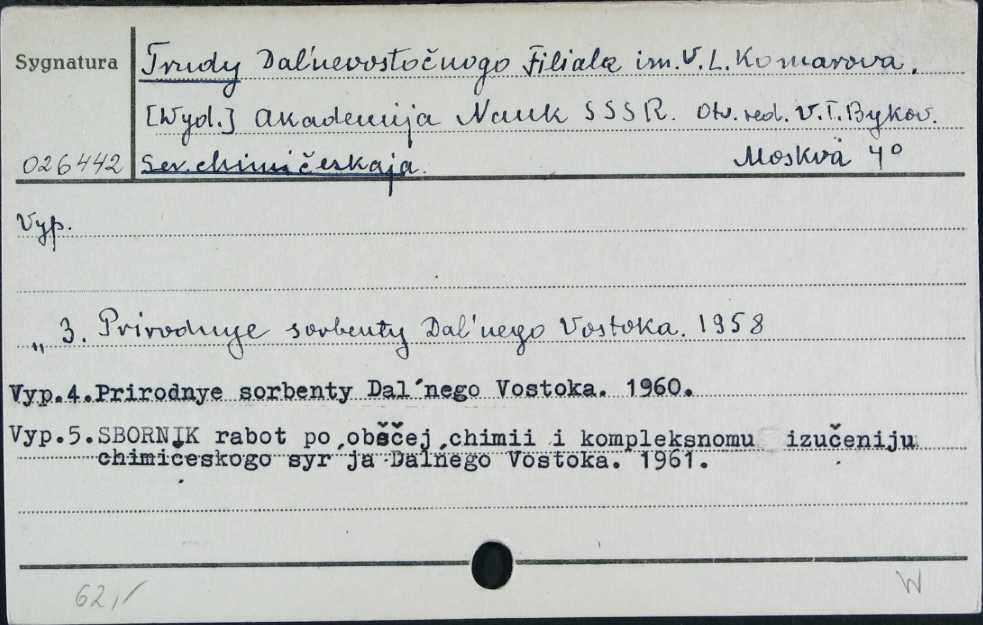 Sygnatura
Trudy Dal'nevostočnogo Filiala im. V. L. Komarova.
[Wyd.] Akademija Nauk SSSR. Otv. red. V. T. Bykov.
026442 Ser. chimičeskaja. Moskva 4°
Vyp.
„ 3. Prirodnye sorbenty Dal'nego Vostoka. 1958
Vyp.4.Prirodnye sorbenty Dal´nego Vostoka. 1960.
Vyp.5.SBORNIK rabot po obščej chimii i kompleksnomu izučeniju
chimiceskogo syr´ja Dalnego Vostoka. 1961.
62,
W